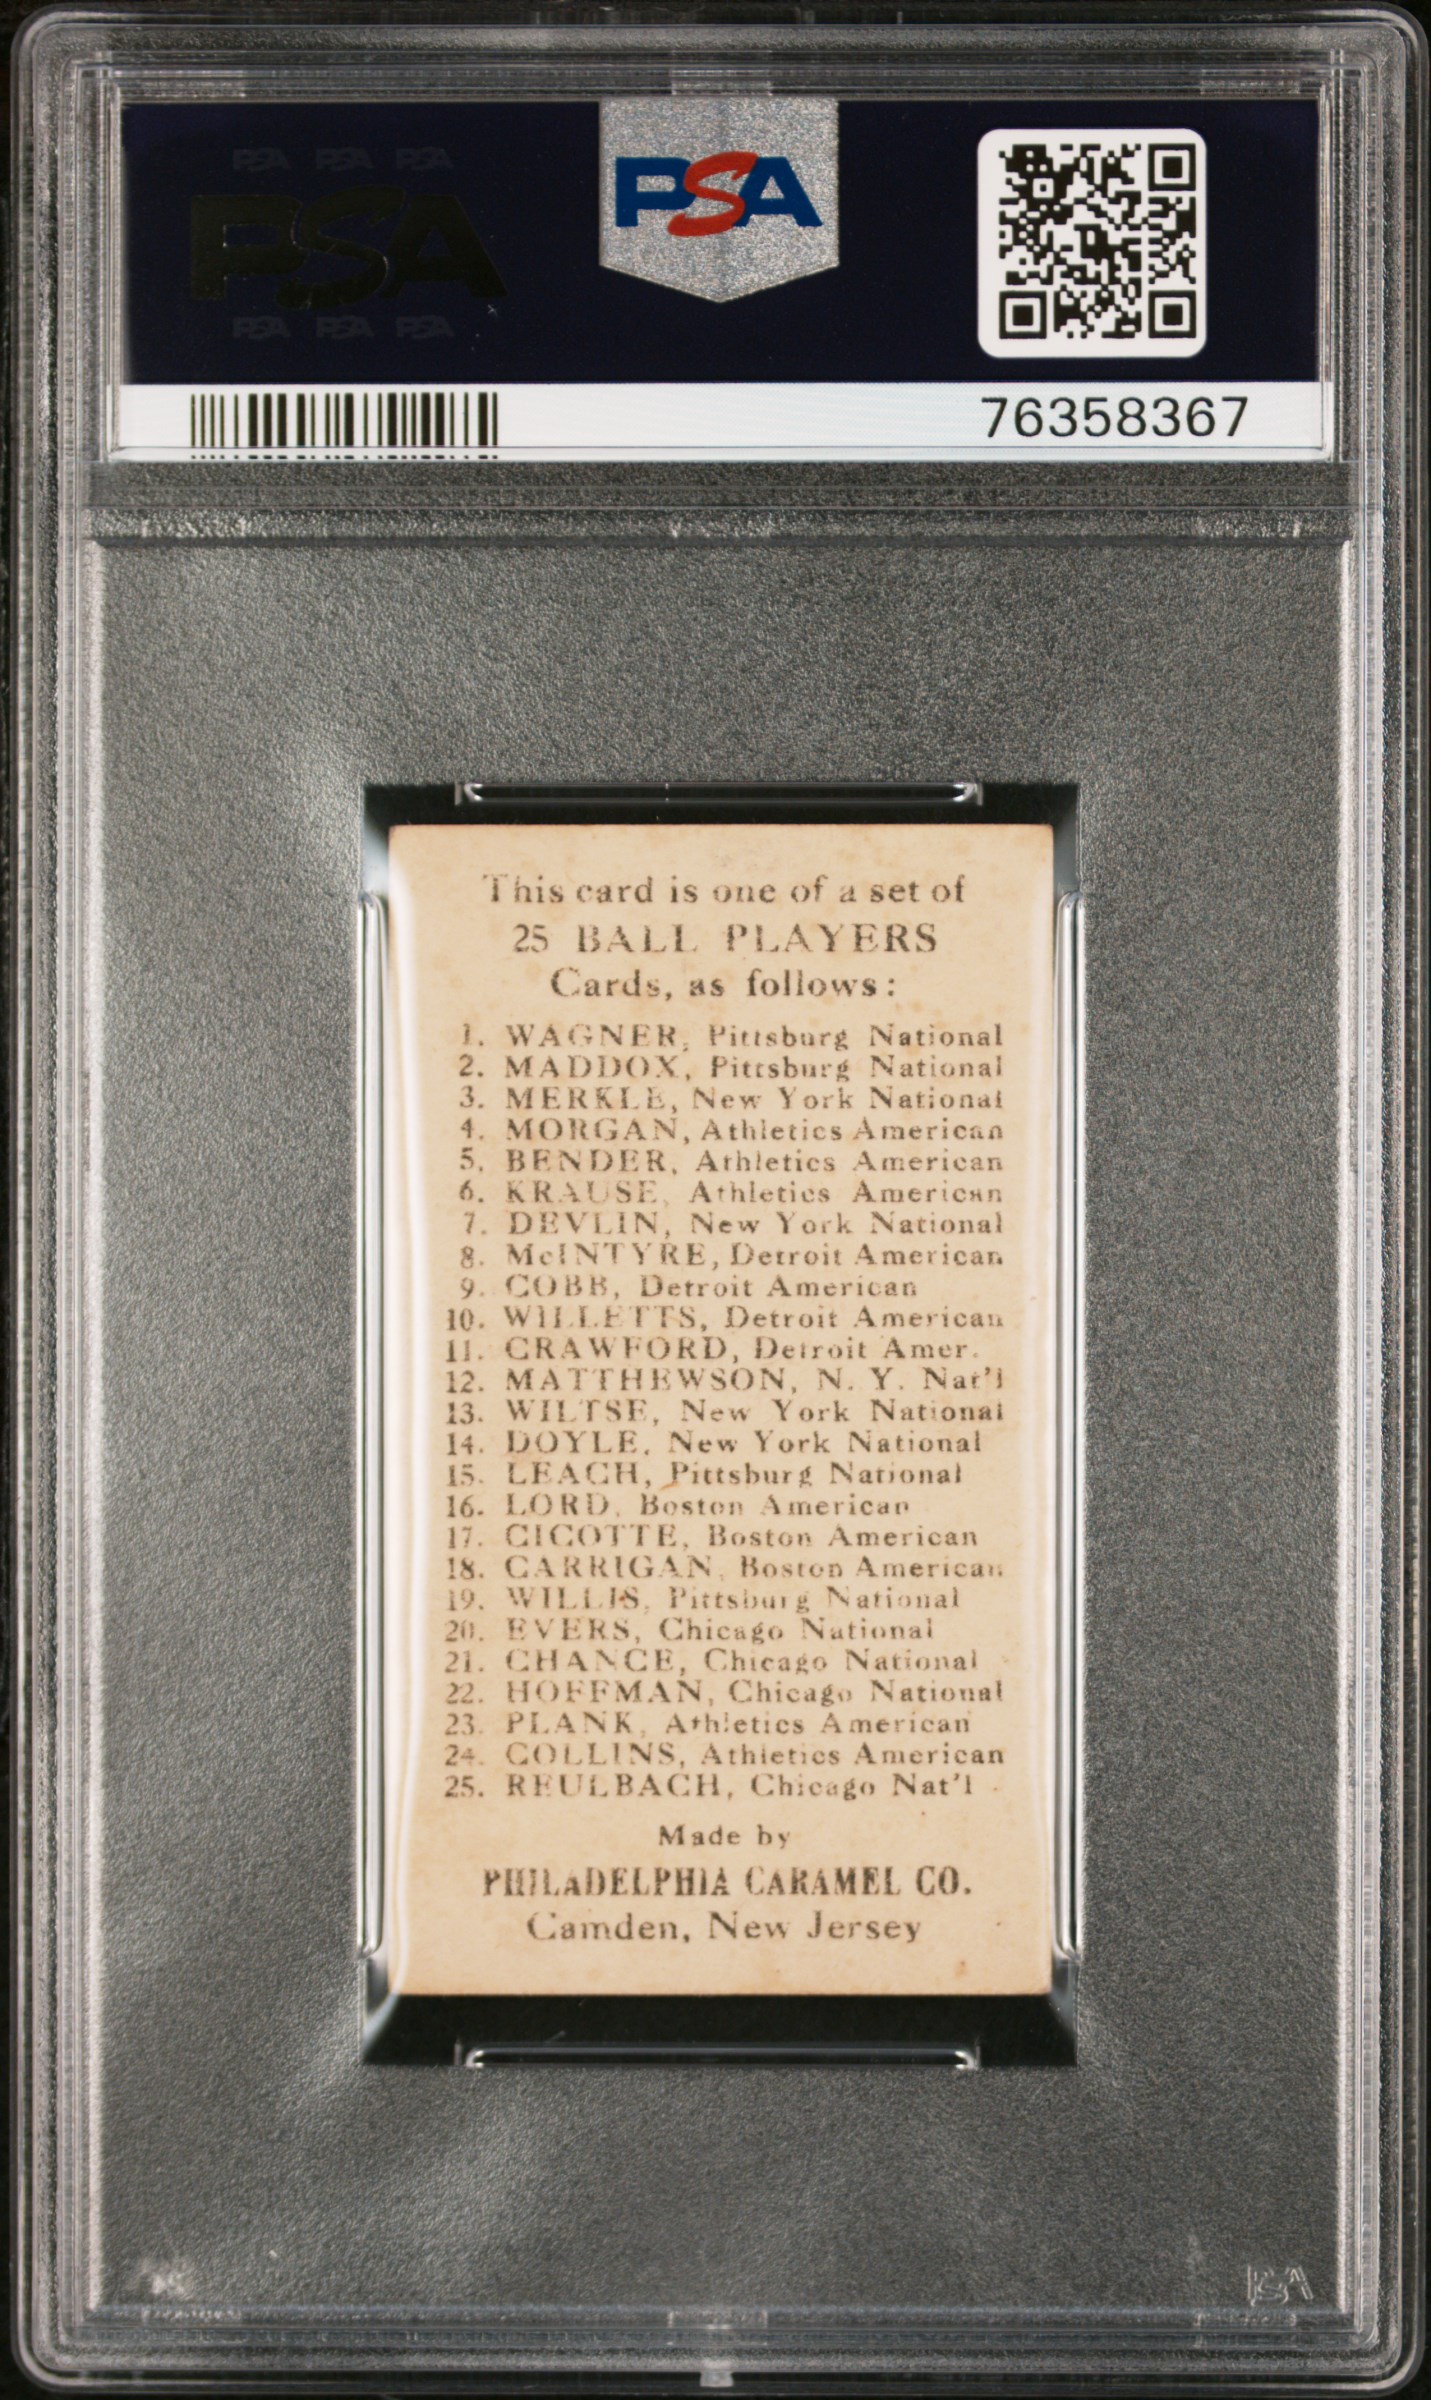 PSA PSA PSA
PSA
PSA PSA PSA
PSA
76358367
This card is one of a set of
25 BALL PLAYERS
Cards, as follows:
1. WAGNER, Pittsburg National
2. MADDOX, Pittsburg National
3. MERKLE, New York National
4. MORGAN, Athletics American
5. BENDER, Athletics American
6. KRAUSE, Athletics American
7. DEVLIN, New York National
8. McINTYRE, Detroit American
9. COBB, Detroit American
10. WILLETTS, Detroit American
11. CRAWFORD, Detroit Amer.
12. MATTHEWSON, N. Y. Nat'l
13. WILTSE, New York National
14. DOYLE, New York National
15. LEACH, Pittsburg National
16. LORD, Boston American
17. CICOTTE, Boston American
18. CARRIGAN, Boston American
19. WILLIS, Pittsburg National
20. EVERS, Chicago National
21. CHANCE, Chicago National
22. HOFFMAN, Chicago National
23. PLANK, Athletics American
24. COLLINS, Athletics American
25. REULBACH, Chicago Nat'l
Made by
PHILADELPHIA CARAMEL CO.
Camden, New Jersey
PSA